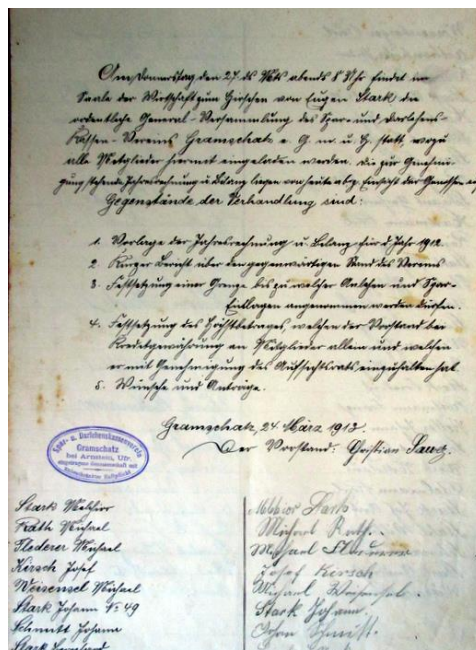 Am Donnerstag den 27. ds Mts abends 8 Uhr findet im
Saale der Wirtschaft zum Hirschen von Eugen Stark die
ordentliche General-Versammlung des Spar- und Darlehens-
Kassen-Vereins Gramschatz e. G. m. u. H. statt, wozu
alle Mitglieder hiermit eingeladen werden. Die zur Genehmi-
gung stehende Jahresrechnung u. Belang liegen von heute ab z. Einsicht der Genossen
Gegenstände der Verhandlung sind:
1. Vorlage der Jahresrechnung u. Belang für d. Jahr 1912.
2. Kurzer Bericht über den gegenwärtigen Stand des Vereins
3. Festsetzung einer Grenze bis zu welcher Anlehen und Spar-
Einlagen angenommen werden dürfen.
4. Festsetzung des Höchstbetrages, welchen der Vorstand bei
Kreditgewährung an Mitglieder allein und welchen
er mit Genehmigung des Aufsichtsrats einzuhalten hat
5. Wünsche und Anträge.
Gramschatz, 24. März 1913.
Der Vorstand: Christian
Spar- u. Darlehenskassenverein
Gramschatz
bei Arnstein, Ufr.
eingetragene Genossenschaft mit
unbeschränkter Haftpflicht
Stark Melchior
Rath Michael
Flederer Michael
Kirsch Josef
Weisensel Michael
Stark Johann No 49
Schmitt Johann
Stark
Melchior Stark
Michael Rath
Michael
Josef Kirsch
Michael Weisensel.
Stark Johann.
Schmitt.